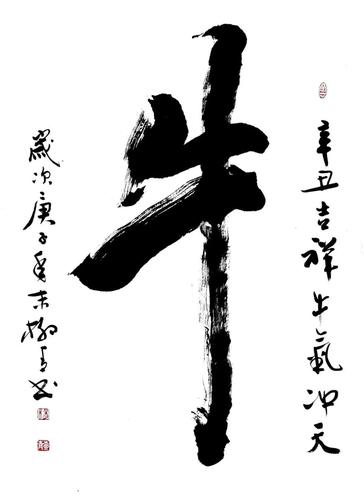 辛丑吉祥牛氣冲天
牛
歲次庚子年末柳青书